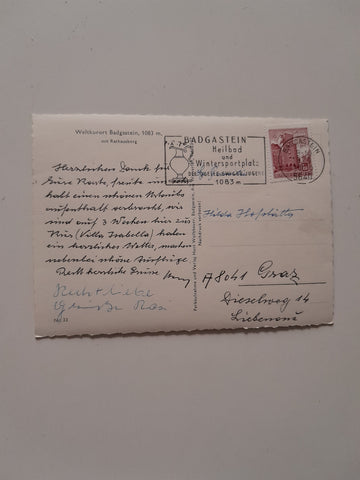 Weltkurort Badgastein, 1083 m,
mit Rathausberg
BADGASTEIN
Heilbad
und
Wintersportplatz
1083 m
BADGASTEIN
Herzlichen Dank für
Eure Karte, freute mich
halt einen schönen Urlaubs
aufenthalt verbracht, wir
sind auf 3 Wochen hier zur
Kur (Villa Isabella) haben
ein herrliches Wetter, machen
nebenbei schöne Ausflüge
Recht herzliche Grüße
Recht liebe
Grüße Resi
Hilda
A 8041 Graz
Dieselweg 14
Liebenau